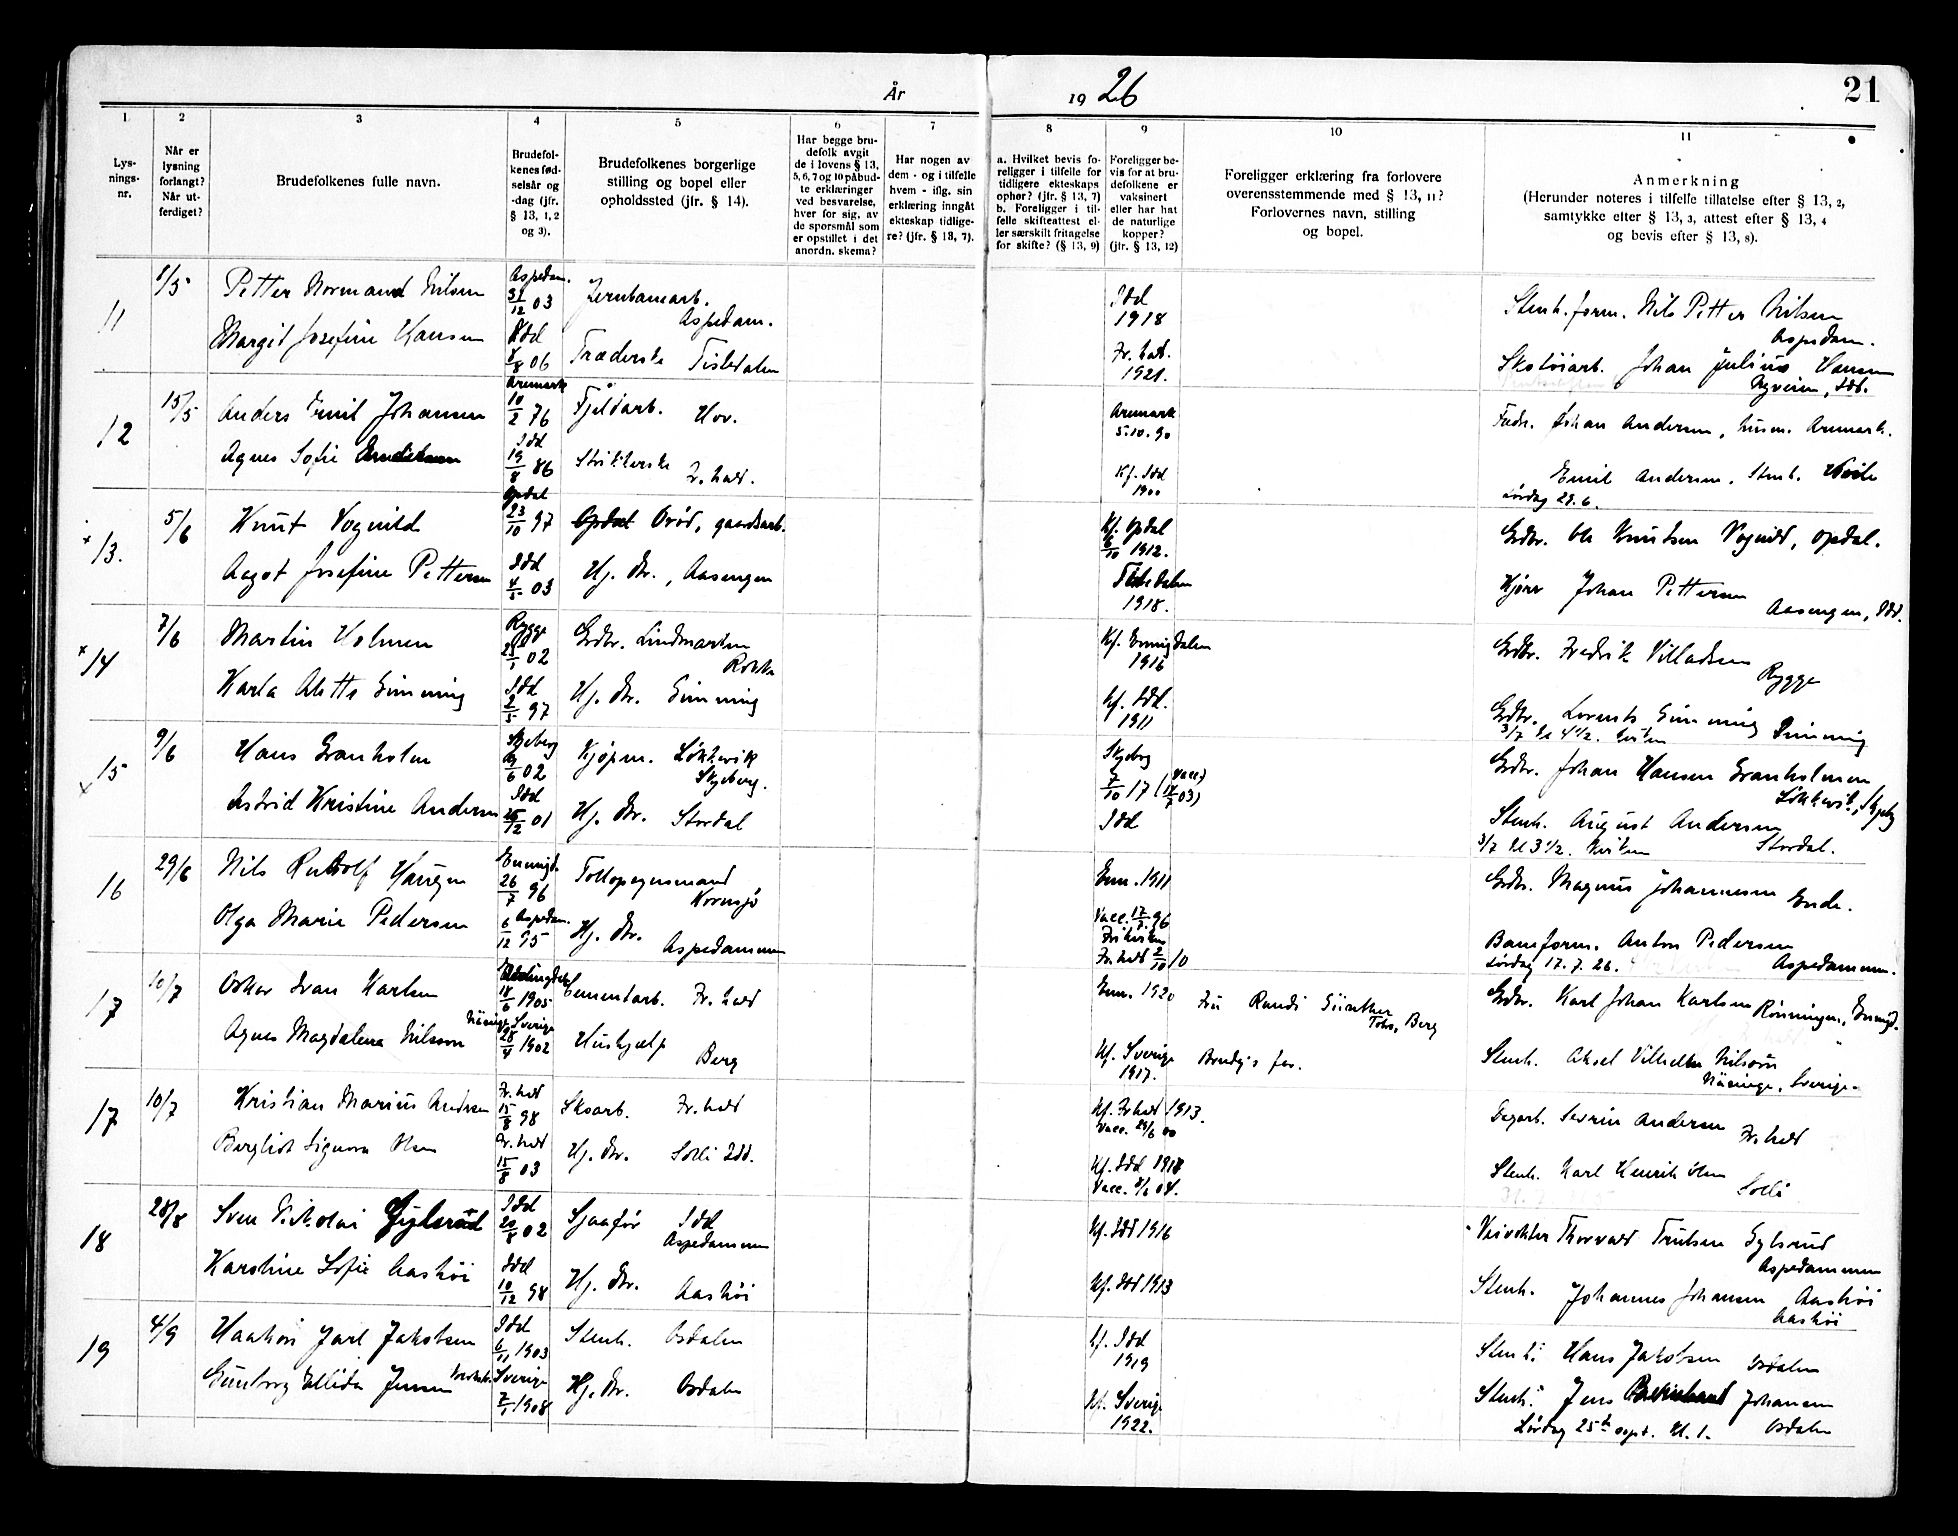 År
19 26
21
1
2
3
4
5
6
7
8
9
10
11
Lys-
nings-
nr.
Når er
lysning
forlangt?
Når ut-
ferdiget?
Brudefolkenes fulle navn.
Brudefol-
kenes fød-
selsår og
-dag (jfr.
§ 13, 1, 2
og 3).
Brudefolkenes borgerlige
stilling og bopel eller
opholdssted (jfr. § 14).
Har begge bru-
defolk avgit
de i lovens § 13,
5, 6, 7 og 10 påbud-
te erklæringer
ved besvarelse,
hver for sig, av
de spørsmål som
er opstillet i det
anordn. skema?
Har nogen av
dem - og i tilfelle
hvem - iflg. sin
erklæring inngått
ekteskap tidlige-
re? (jfr. § 13, 7).
a. Hvilket bevis fo-
religger i tilfelle for
tidligere ekteskaps
ophør? (jfr. § 13, 7)
b. Foreligger i til-
felle skifteattest el-
ler særskilt fritagelse
for skifte? (§ 13, 9)
Foreligger be-
vis for at bru-
defolkene er
vaksinert
eller har hat
de naturlige
kopper?
(jfr. § 13, 12)
Foreligger erklæring fra forlovere
overensstemmende med § 13, 11?
Forlovernes navn, stilling
og bopel.
Anmerkning
(Herunder noteres i tilfelle tillatelse efter § 13, 2,
samtykke efter § 13, 3, attest efter § 13, 4
og bevis efter § 13, 8).
11
1/5
Petter Normand Nilsen
Aspedam.
31/12 03
Jernbanearb.
Aspedam.
Idd
1918
Stenh. form. Nils Petter Nilsen
Aspedam.
Margit Josefine Hansen
Idd
8/8 06
Træderske Tistedalen
Fr.hald.
1921.
Skotøiarb. Johan Julius Hansen
Idd.
12
15/5
Anders Emil Johansen
Aremark
10/2 76
Fjeldarb. Hov.
Aremark
5.10.90
Fedr. Johan Andersen, husm. Aremark.
Agnes Sofie Andersen
Idd
19/8 86
Strikkerske Fr.hald.
Kf. Idd
1900
Emil Andersen, Stenh.
Lørdag 28.6.
13.
5/6
Knut Vognild
Opdal
23/10 97
Opdal Brød, gaardsarb.
Kf. Opdal
6/10 1912.
Grdbr. Ole Knutsen Vognild, Opdal.
Aagot Josefine Pettersen
Idd
4/5 03
Hj. dtr., Aasengen
Tistedalen
1918.
Kjører Johan Pettersen
Aasengen, Idd.
14
7/6
Martin Holmen
Rygge
02
Grdbr. Lindmarken
Rokke
Kf. Enningdalen
1916
Grdbr. Fredrik Villadsen
Rygge
Karla Alette Gimming
Idd
2/5 97
Hj. dtr. Gimming
Kf. Idd.
1911
Grdbr. Lorents Gimming
Gimming
3/7 kl 4 1/2. kirken
15
9/6
Hans Granholm
Skjeberg
02
Kjøpm. Løkkevik
Skjeberg.
Skjeberg
7/10 17 (Vacc.
03)
Grdbr. Johan Hansen Granholmen
Løkkevik, Skjebg
Astrid Kristine Andersen
Idd
01
Hj. dtr. Stordal
Idd
Stenh. August Andersen
Stordal.
3/7 kl 3 1/2. kirken
16
29/6
Nils Rudolf Haugen
Enningd.
26/7 96
Tolloppsynsmand
Kornsjø
Enn. 1911
Grdbr. Magnus Johannesen Ende.
Olga Marie Pedersen
6/12 95 Aspedam.
Hj. dtr.
Aspedammen
Vacc. 17/7 96
Frikirken
Fr.hald 2/10 10
Baneform. Anton Pedersen
Aspedammen.
Lørdag 17.7.26.
17
10/7
Oskar Ivan Karlsen
18/6 1905
Cementarb. Fr.hald
Enn. 1920
Fru Randi Günther
Berg
Grdbr. Karl Johan Karlsen Rönningen, Enningd.
Agnes Magdalena Nilsson
Näsinge Sverige
28/4 1902
Hushjelp
Berg
Kf. Sverige
1917.
Brudg's far.
Stenh. Aksel Vilhelm Nilsson
Näsinge, Sverige.
17
10/7
Kristian Marius Andersen
Fr.hald
15/8 98
Skoarb. Fr.hald
Kf. Fr.hald 1913.
Vacc. 29/6 00
Severin Andersen
Fr.hald
Bergliot Signora Olsen
Fr.hald
15/8 03
Hj. dtr. Solli Idd.
Kf. Idd 1918
Vacc. 8/6 04.
Stenh. Karl Henrik Olsen
Solli
18
28/8
Sven Nikolai Gylsrud
Idd
20/8 02
Sjaafør Idd
Aspedammen
Kf. Idd 1916
Veivokter Thorvald Trulsen Gylsrud
Aspedammen
Karoline Sofie Aashøi
Idd
10/12 98
Hj. dtr. Aashøi
Kf. Idd 1913
Stenh. Johannes Johansen Aashøi
Aashøi
19
4/9
Haakon Jarl Jakobsen
Idd
6/11 1903
Stenh. Osdalen
Kf. Idd
1919
Stenh. Hans Jakobsen Osdalen
Gunborg Ellida Jensen
Sverige
7/1 1908
Hj. dtr. Osdalen
Kf. Sverige
1922.
Stenh. Jens Johansen
Osdalen
Lørdag 25de sept. kl. 1.